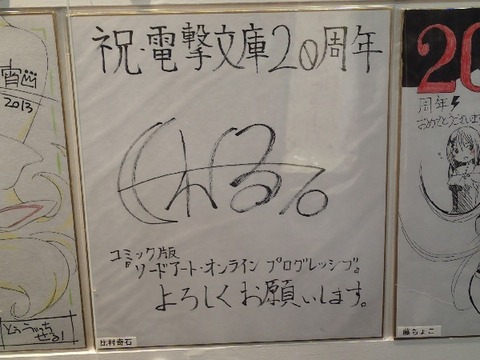 宵
2013
とらぅっち
せる!
祝・電撃文庫20周年
コミック版
ソードアート・オンライン プログレッシブ。
よろしくお願いします。
比村奇石
20
周年
おめでとうございます
藤ちょこ